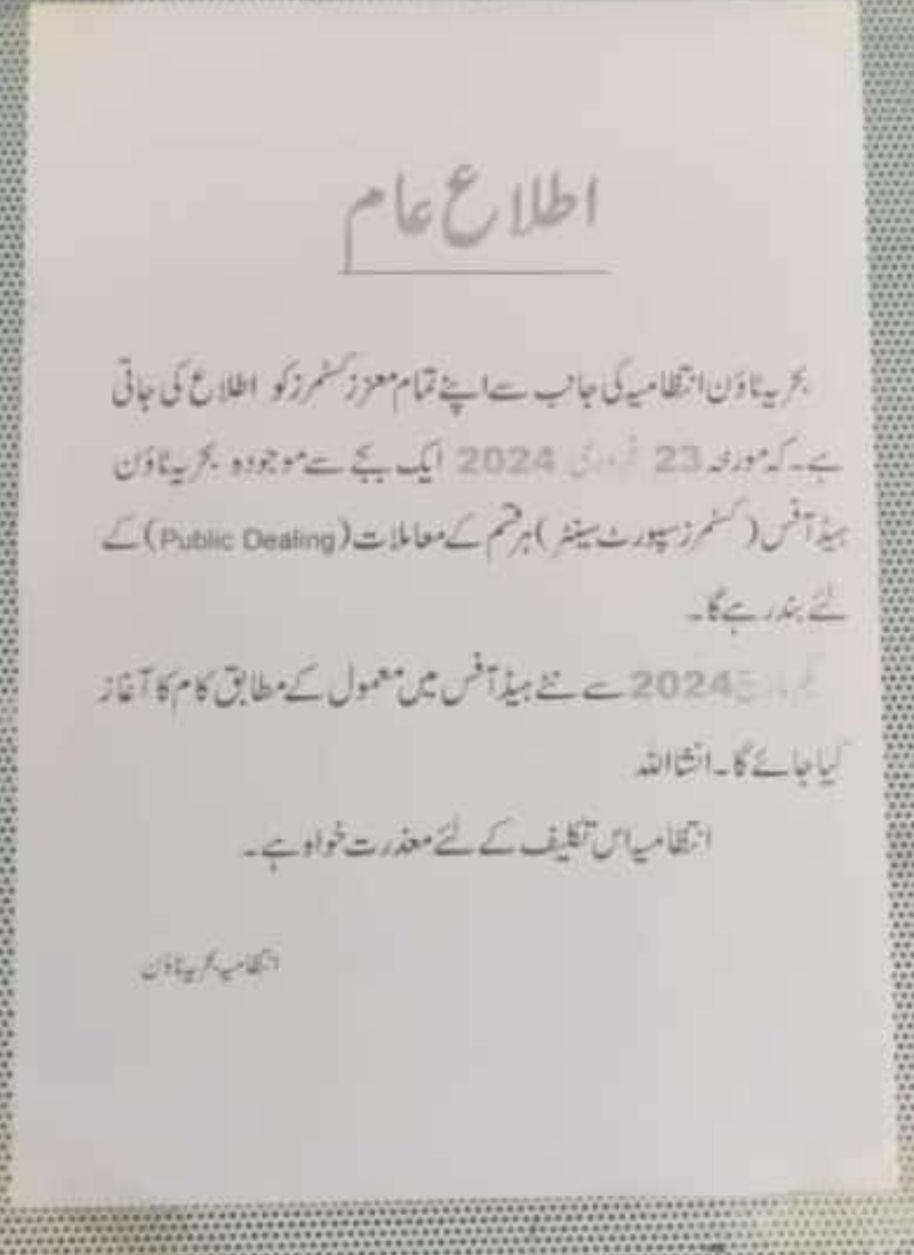 اطلاع عام
بحریہ ٹاؤن انتظامیہ کی جانب سے اپنے تمام معزز کسٹمرز کو اطلاع کی جاتی
ہے۔ کہ مورخہ 23 فروری 2024 ایک بجے سے موجودہ بحریہ ٹاؤن
ہیڈ آفس (کسٹمرز سپورٹ سینٹر) ہر قسم کے معاملات (Public Dealing) کے
لئے بند رہے گا۔
یکم مارچ 2024 سے نئے ہیڈ آفس میں معمول کے مطابق کام کا آغاز
کیا جائے گا۔ انشااللہ
انتظامیہ اس تکلیف کے لئے معذرت خواہ ہے۔
انتظامیہ بحریہ ٹاؤن